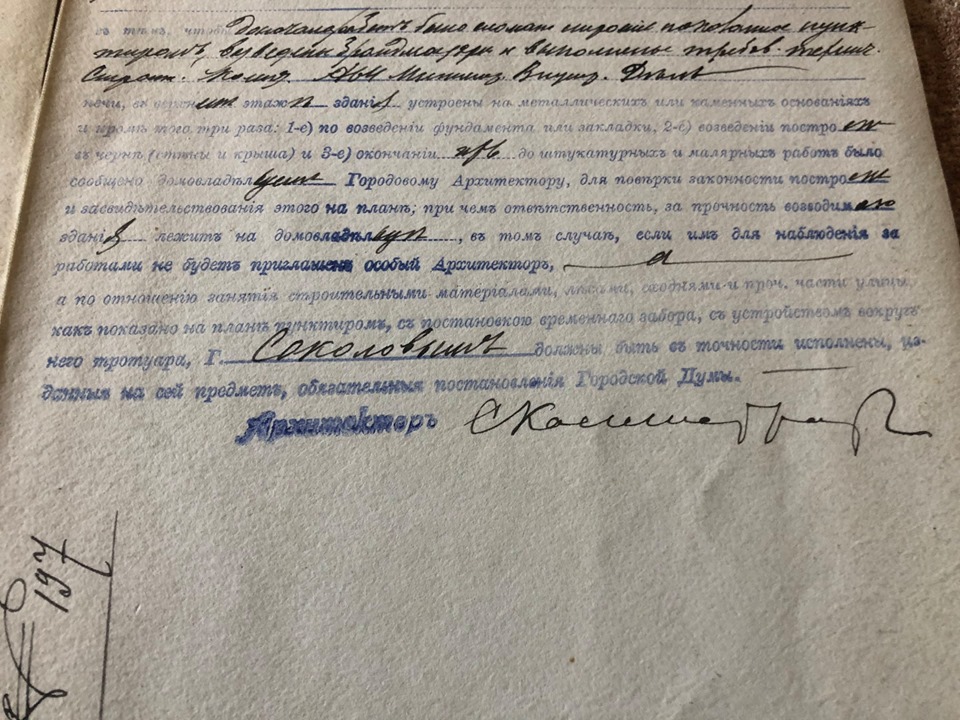 съ тѣмъ, чтобы было сломано строение показанное пунк-
тиромъ, выведены брандмауеры и выполнены требов. техни.
Строит. Комит. Мин. Внутр. Дѣлъ
печи, въ верхн этаж здані устроены на металлическихъ или каменныхъ основаніяхъ
и кромѣ того три раза: 1-е) по возведеніи фундамента или закладки, 2-е) возведеніи постро ек
въ чернѣ (стѣны и крыша) и 3-е) окончаніи до штукатурныхъ и малярныхъ работъ было
сообщено домовладѣл цемъ Городовому Архитектору, для повѣрки законности постро ек
и засвидѣтельствованія этого на планѣ; при чемъ отвѣтственность, за прочность возводим
здані я лежитъ на домовладѣл , въ томъ случаѣ, если имъ для наблюденія за
работами не будетъ приглашенъ особый Архитекторъ,
а по отношенію занятія строительными матеріалами, лѣсами, сходнями и проч. части улицы,
какъ показано на планѣ пунктиромъ, съ постановкою временнаго забора, съ устройствомъ вокругъ
него тротуара, Г. Соколовымъ должны быть въ точности исполнены, из-
данныя на сей предметъ, обязательныя постановленія Городской Думы.
Архитекторъ
197